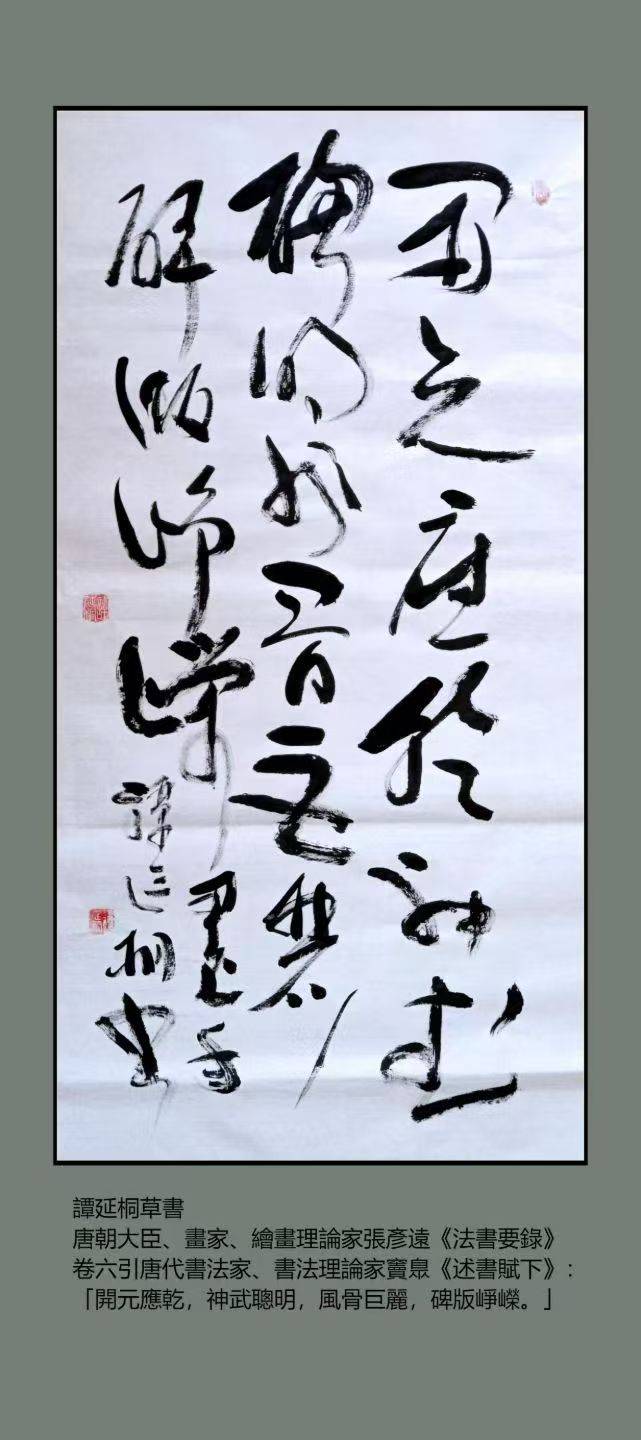 開元應乾神武
聰明風骨巨麗
碑版崢嶸
譚延桐書
譚延桐草書
唐朝大臣、畫家、繪畫理論家張彥遠《法書要錄》
卷六引唐代書法家、書法理論家竇臮《述書賦下》：
「開元應乾，神武聰明，風骨巨麗，碑版崢嶸。」